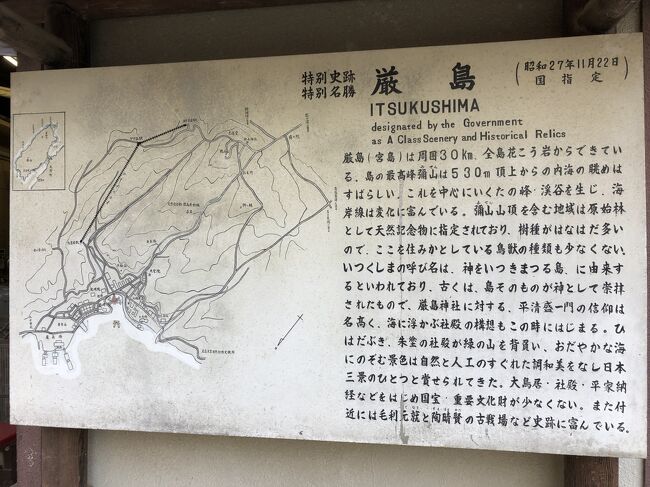 特別史跡
特別名勝
厳島
(昭和27年11月22日
国指定)
ITSUKUSHIMA
designated by the Government
as A Class Scenery and Historical Relics
厳島(宮島)は周囲30Km、全島花こう岩からできてい
る。島の最高峰彌山は530m頂上からの内海の眺めは
すばらしい。これを中心にいくたの峰・渓谷を生じ、海
岸線は変化に富んでいる。彌山山頂を含む地域は原始林
として天然記念物に指定されており、樹種がはなはだ多い
ので、ここを住みかとしている鳥獣の種類も少なくない。
いつくしまの呼び名は、神をいつきまつる島、に由来す
るといわれており、古くは、島そのものが神として崇拝
されたもので、厳島神社に対する、平清盛一門の信仰は
名高く、海に浮かぶ社殿の構想もこの時にはじまる。ひ
はだぶき、朱塗の社殿が緑の山を背負い、おだやかな海
にのぞむ景色は自然と人工のすぐれた調和美をなし日本
三景のひとつと賞せられてきた。大鳥居・社殿・平家納
経などをはじめ国宝・重要文化財が少なくない。また付
近には毛利元就と陶晴賢の古戦場など史跡に富んでいる。